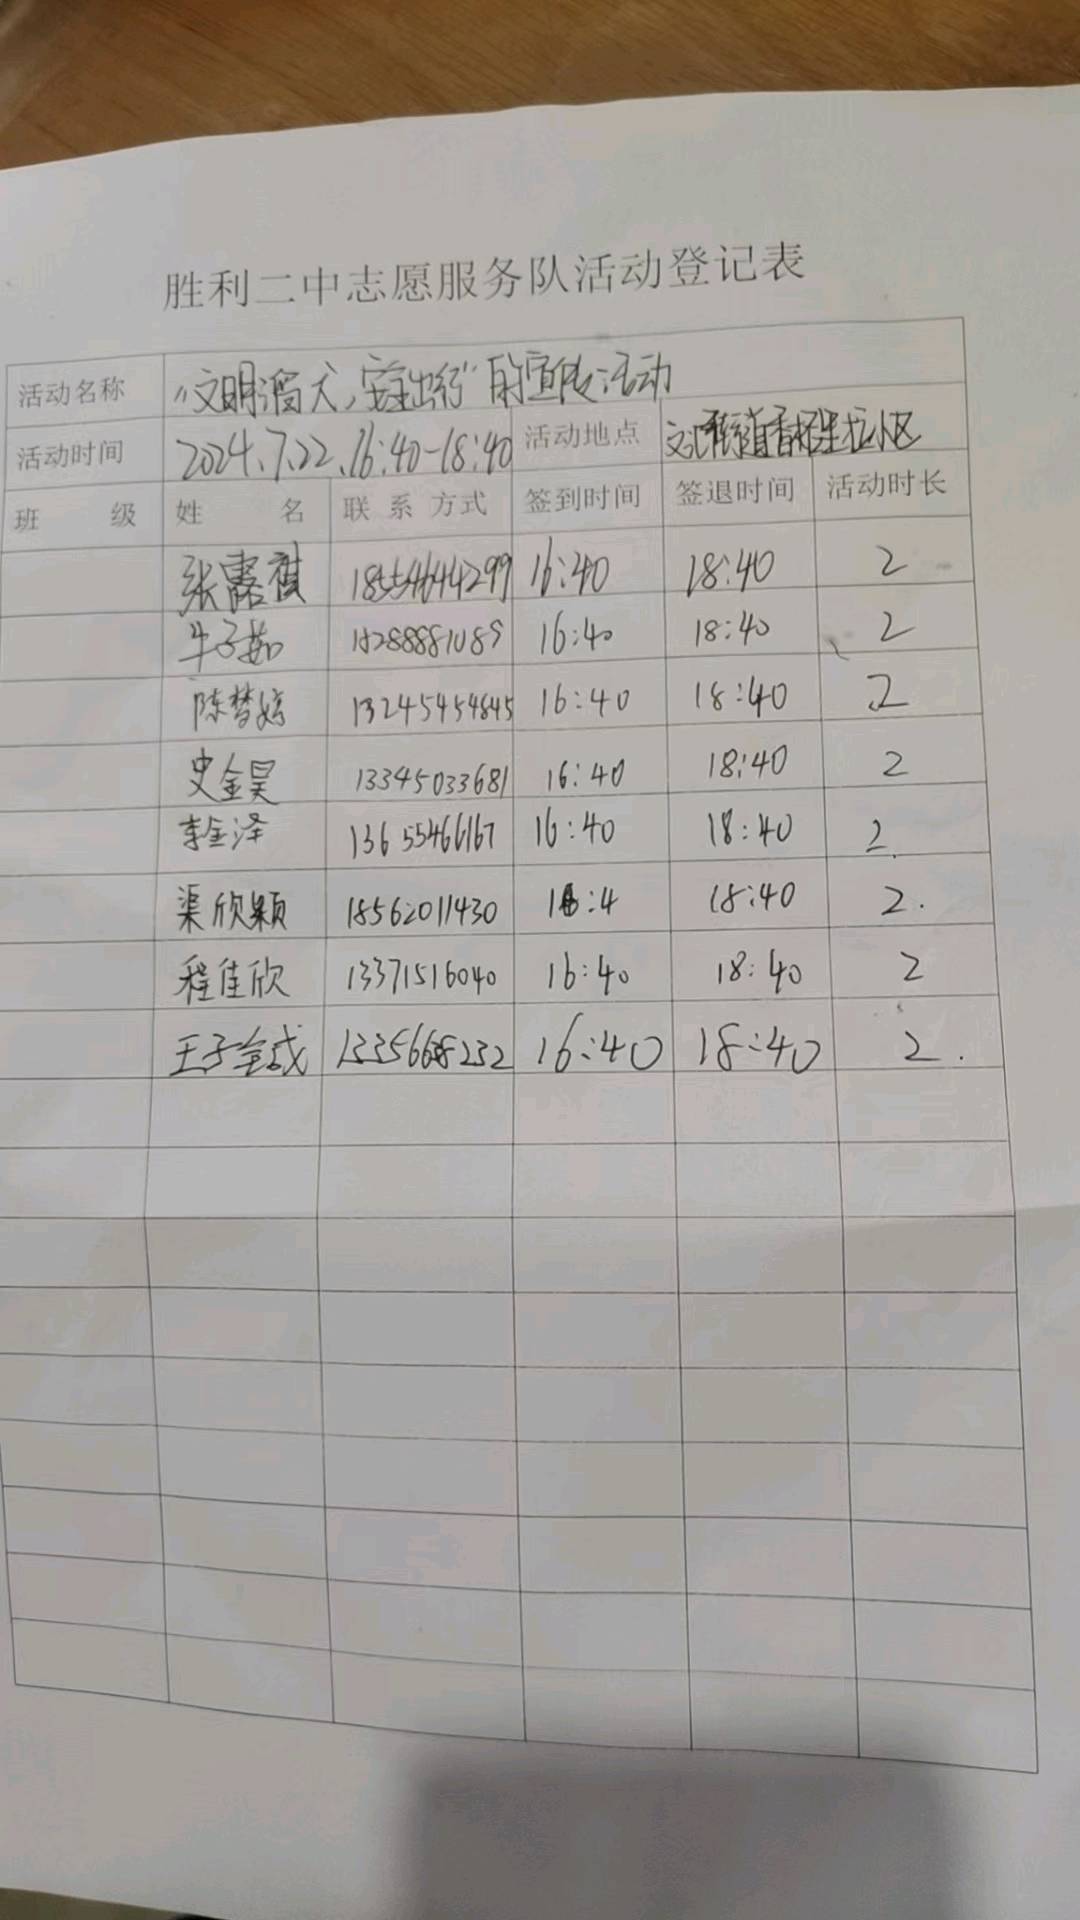 胜利二中志愿服务队活动登记表
活动名称 “文明溜犬,安全出行”的宣传活动
活动时间 2024.7.22.16:40-18:40 活动地点 小区
班 级 姓 名 联系方式 签到时间 签退时间 活动时长
张露祺 18554644299 16:40 18:40 2
牛子茹 16:40 18:40 2
陈梦婷 13245454845 16:40 18:40 2
史金昊 13345033681 16:40 18:40 2
李金泽 13655466167 16:40 18:40 2.
渠欣颖 18562011430 16:4 18:40 2.
程佳欣 13371516040 16:40 18:40 2
王子 16:40 18:40 2.